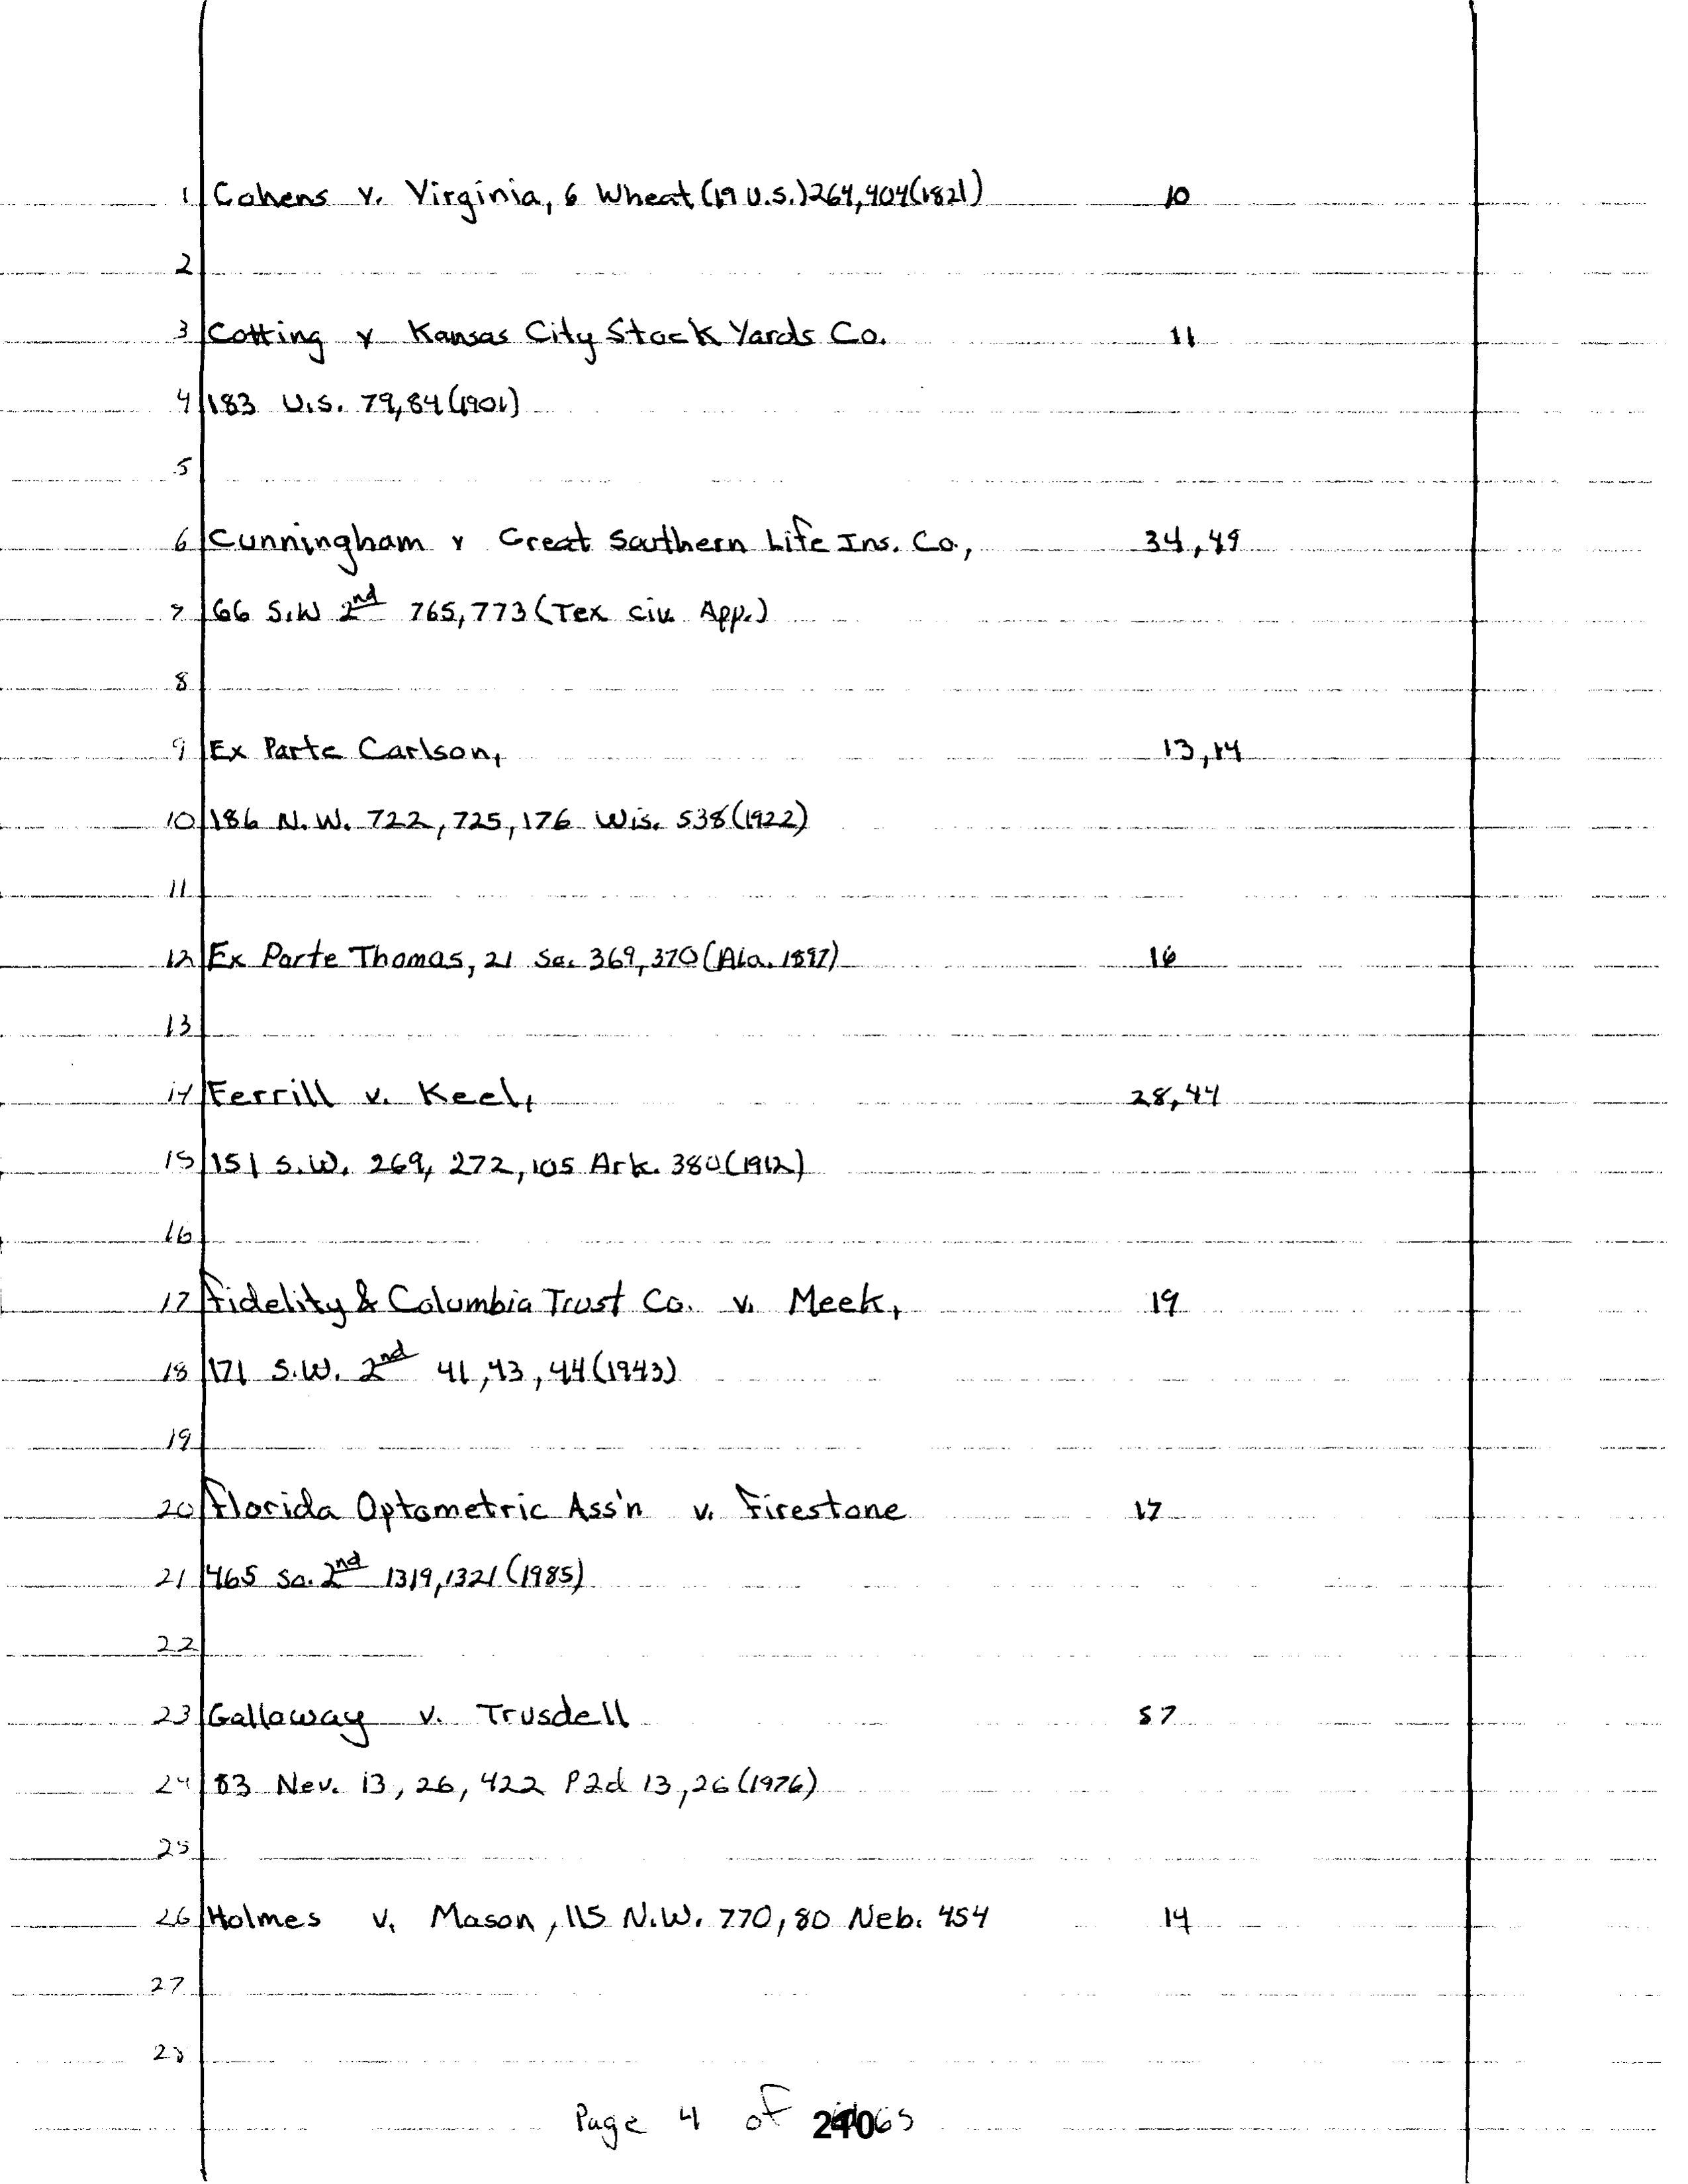 1 Cohens v. Virginia, 6 Wheat (19 U.S.) 264, 404 (1821) 10
2
3 Cotting v Kansas City Stock Yards Co. 11
4 183 U.S. 79, 84 (1901)
5
6 Cunningham v Great Southern Life Ins. Co, 34, 49
7 66 S.W 2nd 765, 773 (Tex civ App.)
8
9 Ex Parte Carlson, 13, 14
10 186 N.W. 722, 725, 176 Wis. 538 (1922)
11
12 Ex Parte Thomas, 21 So. 369, 370 (Ala. 1897) 16
13
14 Ferrill v. Keel, 28, 44
15 151 S.W. 269, 272, 105 Ark. 380 (1912)
16
17 Fidelity & Columbia Trust Co. v. Meek, 19
18 171 S.W. 2nd 41, 43, 44 (1943)
19
20 Florida Optometric Ass'n v. Firestone 17
21 465 So. 2nd 1319, 1321 (1985)
22
23 Galloway v. Trusdell 57
24 83 Nev. 13, 26, 422 P2d 13, 26 (1976)
25
26 Holmes v. Mason, 115 N.W. 770, 80 Neb. 454 14
27
28
Page 4 of